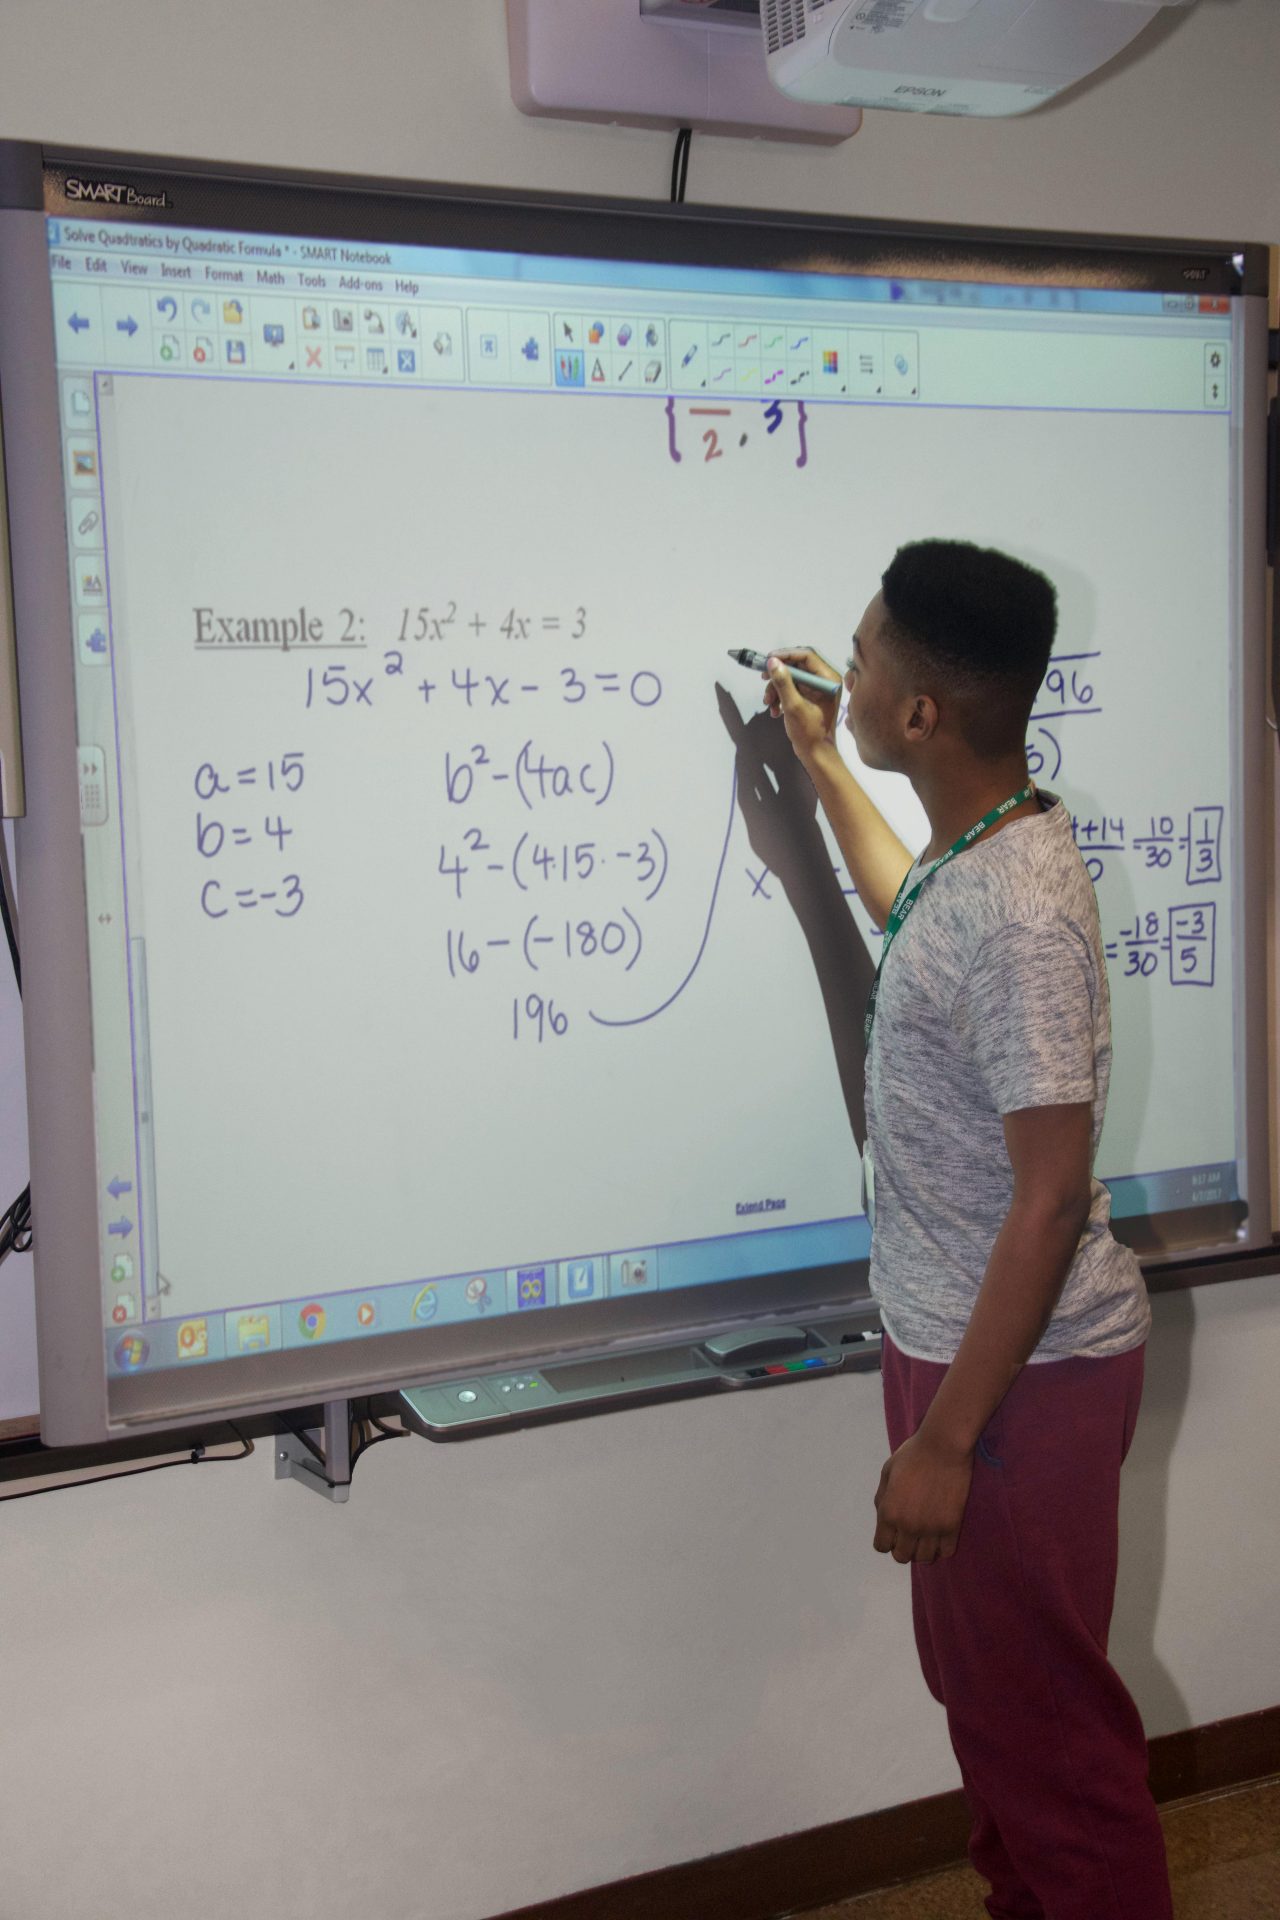 EPSON
SMART Board
Solve Quadtratics by Quadratic Formula * - SMART Notebook
File Edit View Insert Format Math Tools Add-ons Help
{ 2 , 3 }
Example 2: 15x² + 4x = 3
15x² + 4x - 3 = 0
a = 15
b = 4
c = -3
b² - (4ac)
4² - (4·15·-3)
16 - (-180)
196
x
96
5)
+14 10 1
0 30 = 3
= -18 = -3
30 5
BEAR BEAR BEAR BEAR BEAR
Extend Page